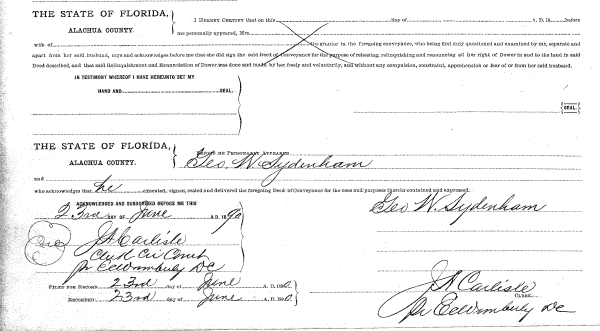 THE STATE OF FLORIDA,
ALACHUA COUNTY.
I HEREBY CERTIFY that on this day of A. D. 18 before
me personally appeared, Mrs.
wife of the grantor in the foregoing conveyance, who being first duly questioned and examined by me, separate and
apart from her said husband, says and acknowledges before me that she did sign the said Deed of Conveyance for the purpose of releasing, relinquishing and renouncing all her right of Dower in and to the land in said
Deed described, and that said Relinquishment and Renunciation of Dower was done and made by her freely and voluntarily, and without any compulsion, constraint, apprehension or fear of or from her said husband.
IN TESTIMONY WHEREOF I HAVE HEREUNTO SET MY
HAND AND SEAL.
SEAL.
THE STATE OF FLORIDA,
ALACHUA COUNTY.
BEFORE ME PERSONALLY APPEARED
Geo. W. Sydenham
and
who acknowledges that he executed, signed, sealed and delivered the foregoing Deed of Conveyance for the uses and purposes therein contained and expressed.
ACKNOWLEDGED AND SUBSCRIBED BEFORE ME THIS
23rd DAY OF June A. D. 1890
Geo W. Sydenham
J A Carlisle
Clerk Cir Court
pr E C Wimberly DC
FILED FOR RECORD 23rd day of June A. D. 1890.
RECORDED 23rd day of June A. D. 1890.
J A Carlisle
CLERK.
pr E C Wimberly DC